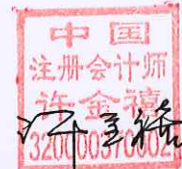 中国
注册会计师
许金禧
许金禧
320000370002